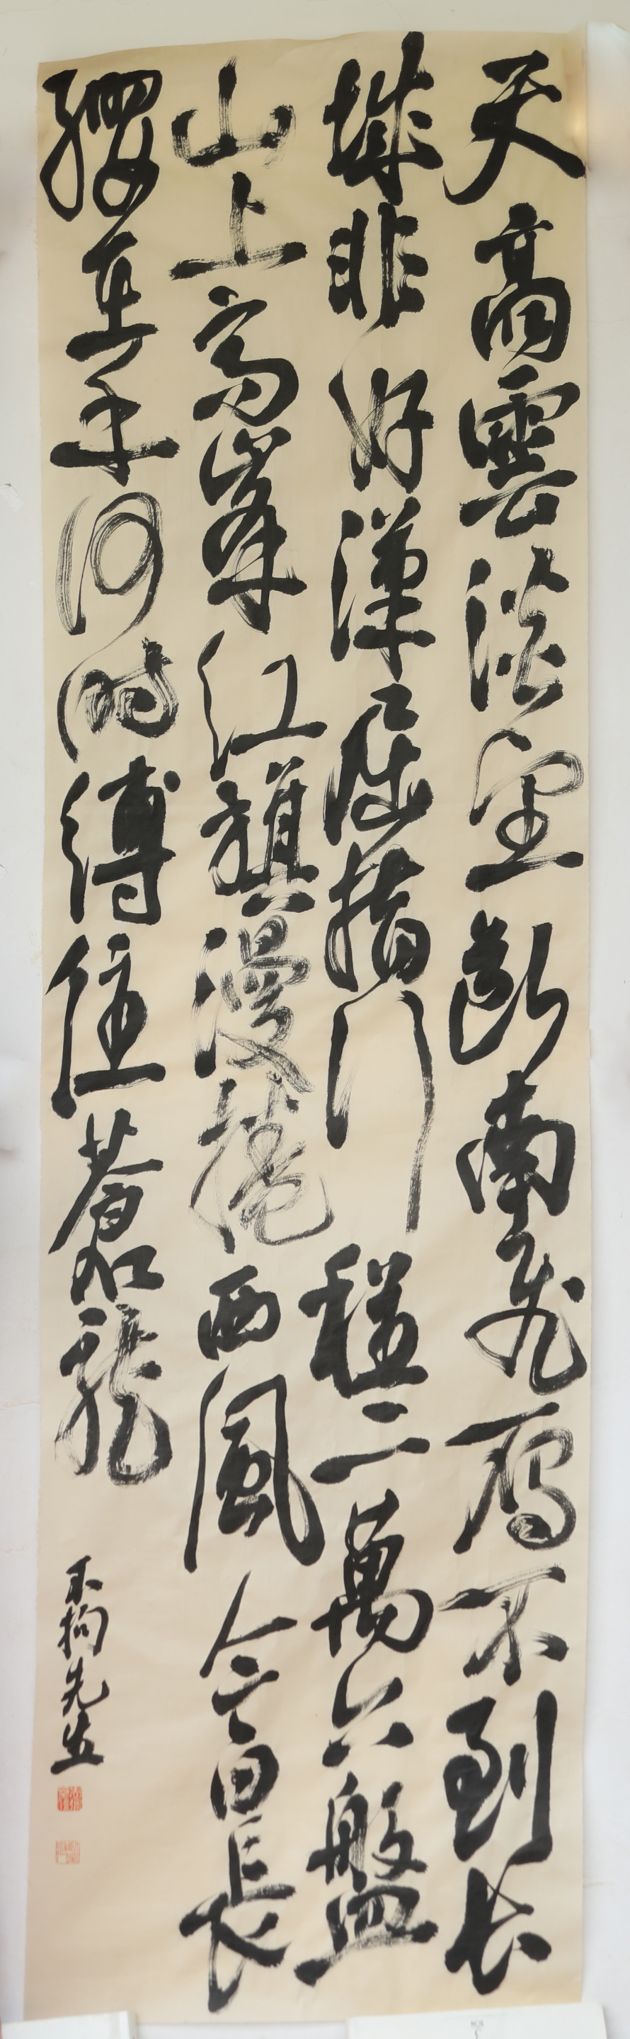 天高雲淡望断南飛雁不到长
城非好漢屈指行程二萬六盤
山上高峯红旗漫捲西風今日長
纓在手何時縛住蒼龍
不拘先生